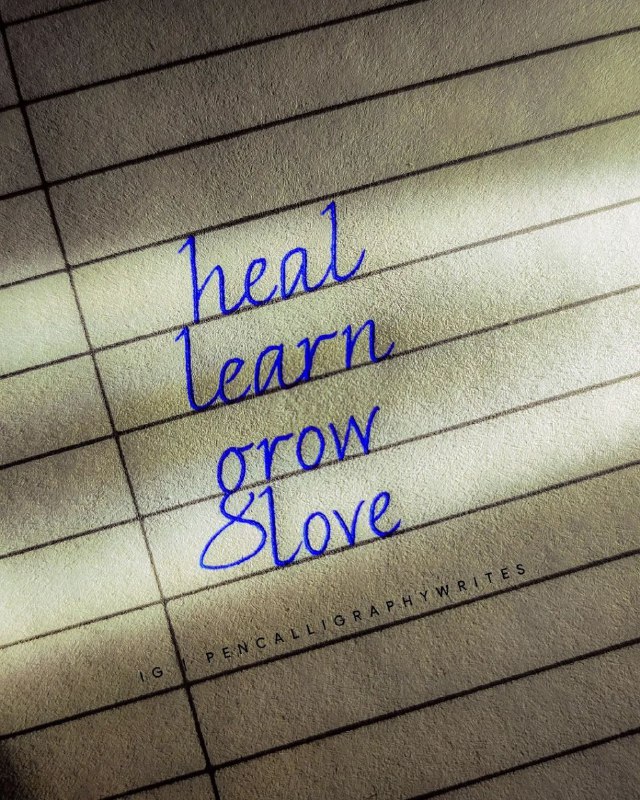 heal
learn
grow
&love
IG | PENCALLIGRAPHYWRITES